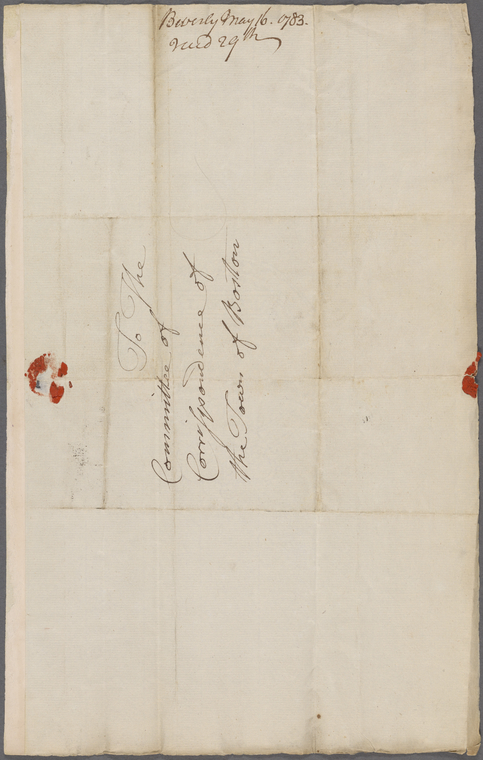 Beverly May 16. 1783.
recd 29th
To The
Committee of
Correspondence of
the Town of Boston